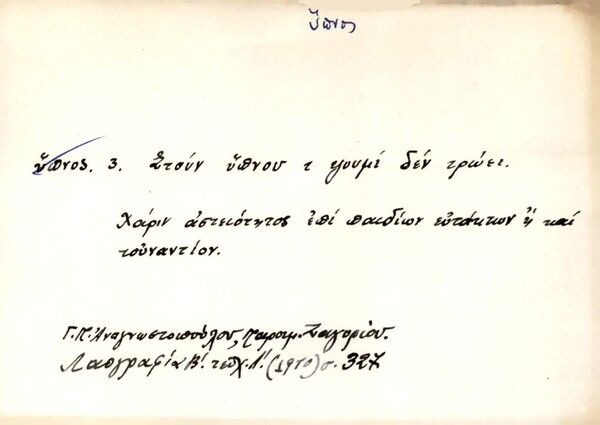 ὕπνος
ὕπνος. 3. Στούν ὕπνου τ ψουμί δέν τρώει.
Χάριν ἀστειότητος ἐπί παιδίων εὐτάκτων ἤ καί
τοὐναντίον.
Γ. Π. Ἀναγνωστοπούλου, Παροιμ. Ζαγορίου.
Λαογραφία Β΄. τεῦχ. Λ΄. (1910) σ. 327